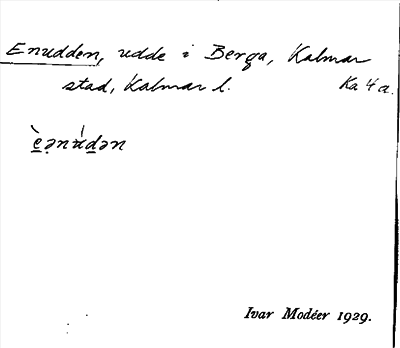 Enudden, udde i Berga, Kalmar
stad, Kalmar l. Ka 4 a.
è̱ə̣nú̱ḏən
Ivar Modéer 1929.